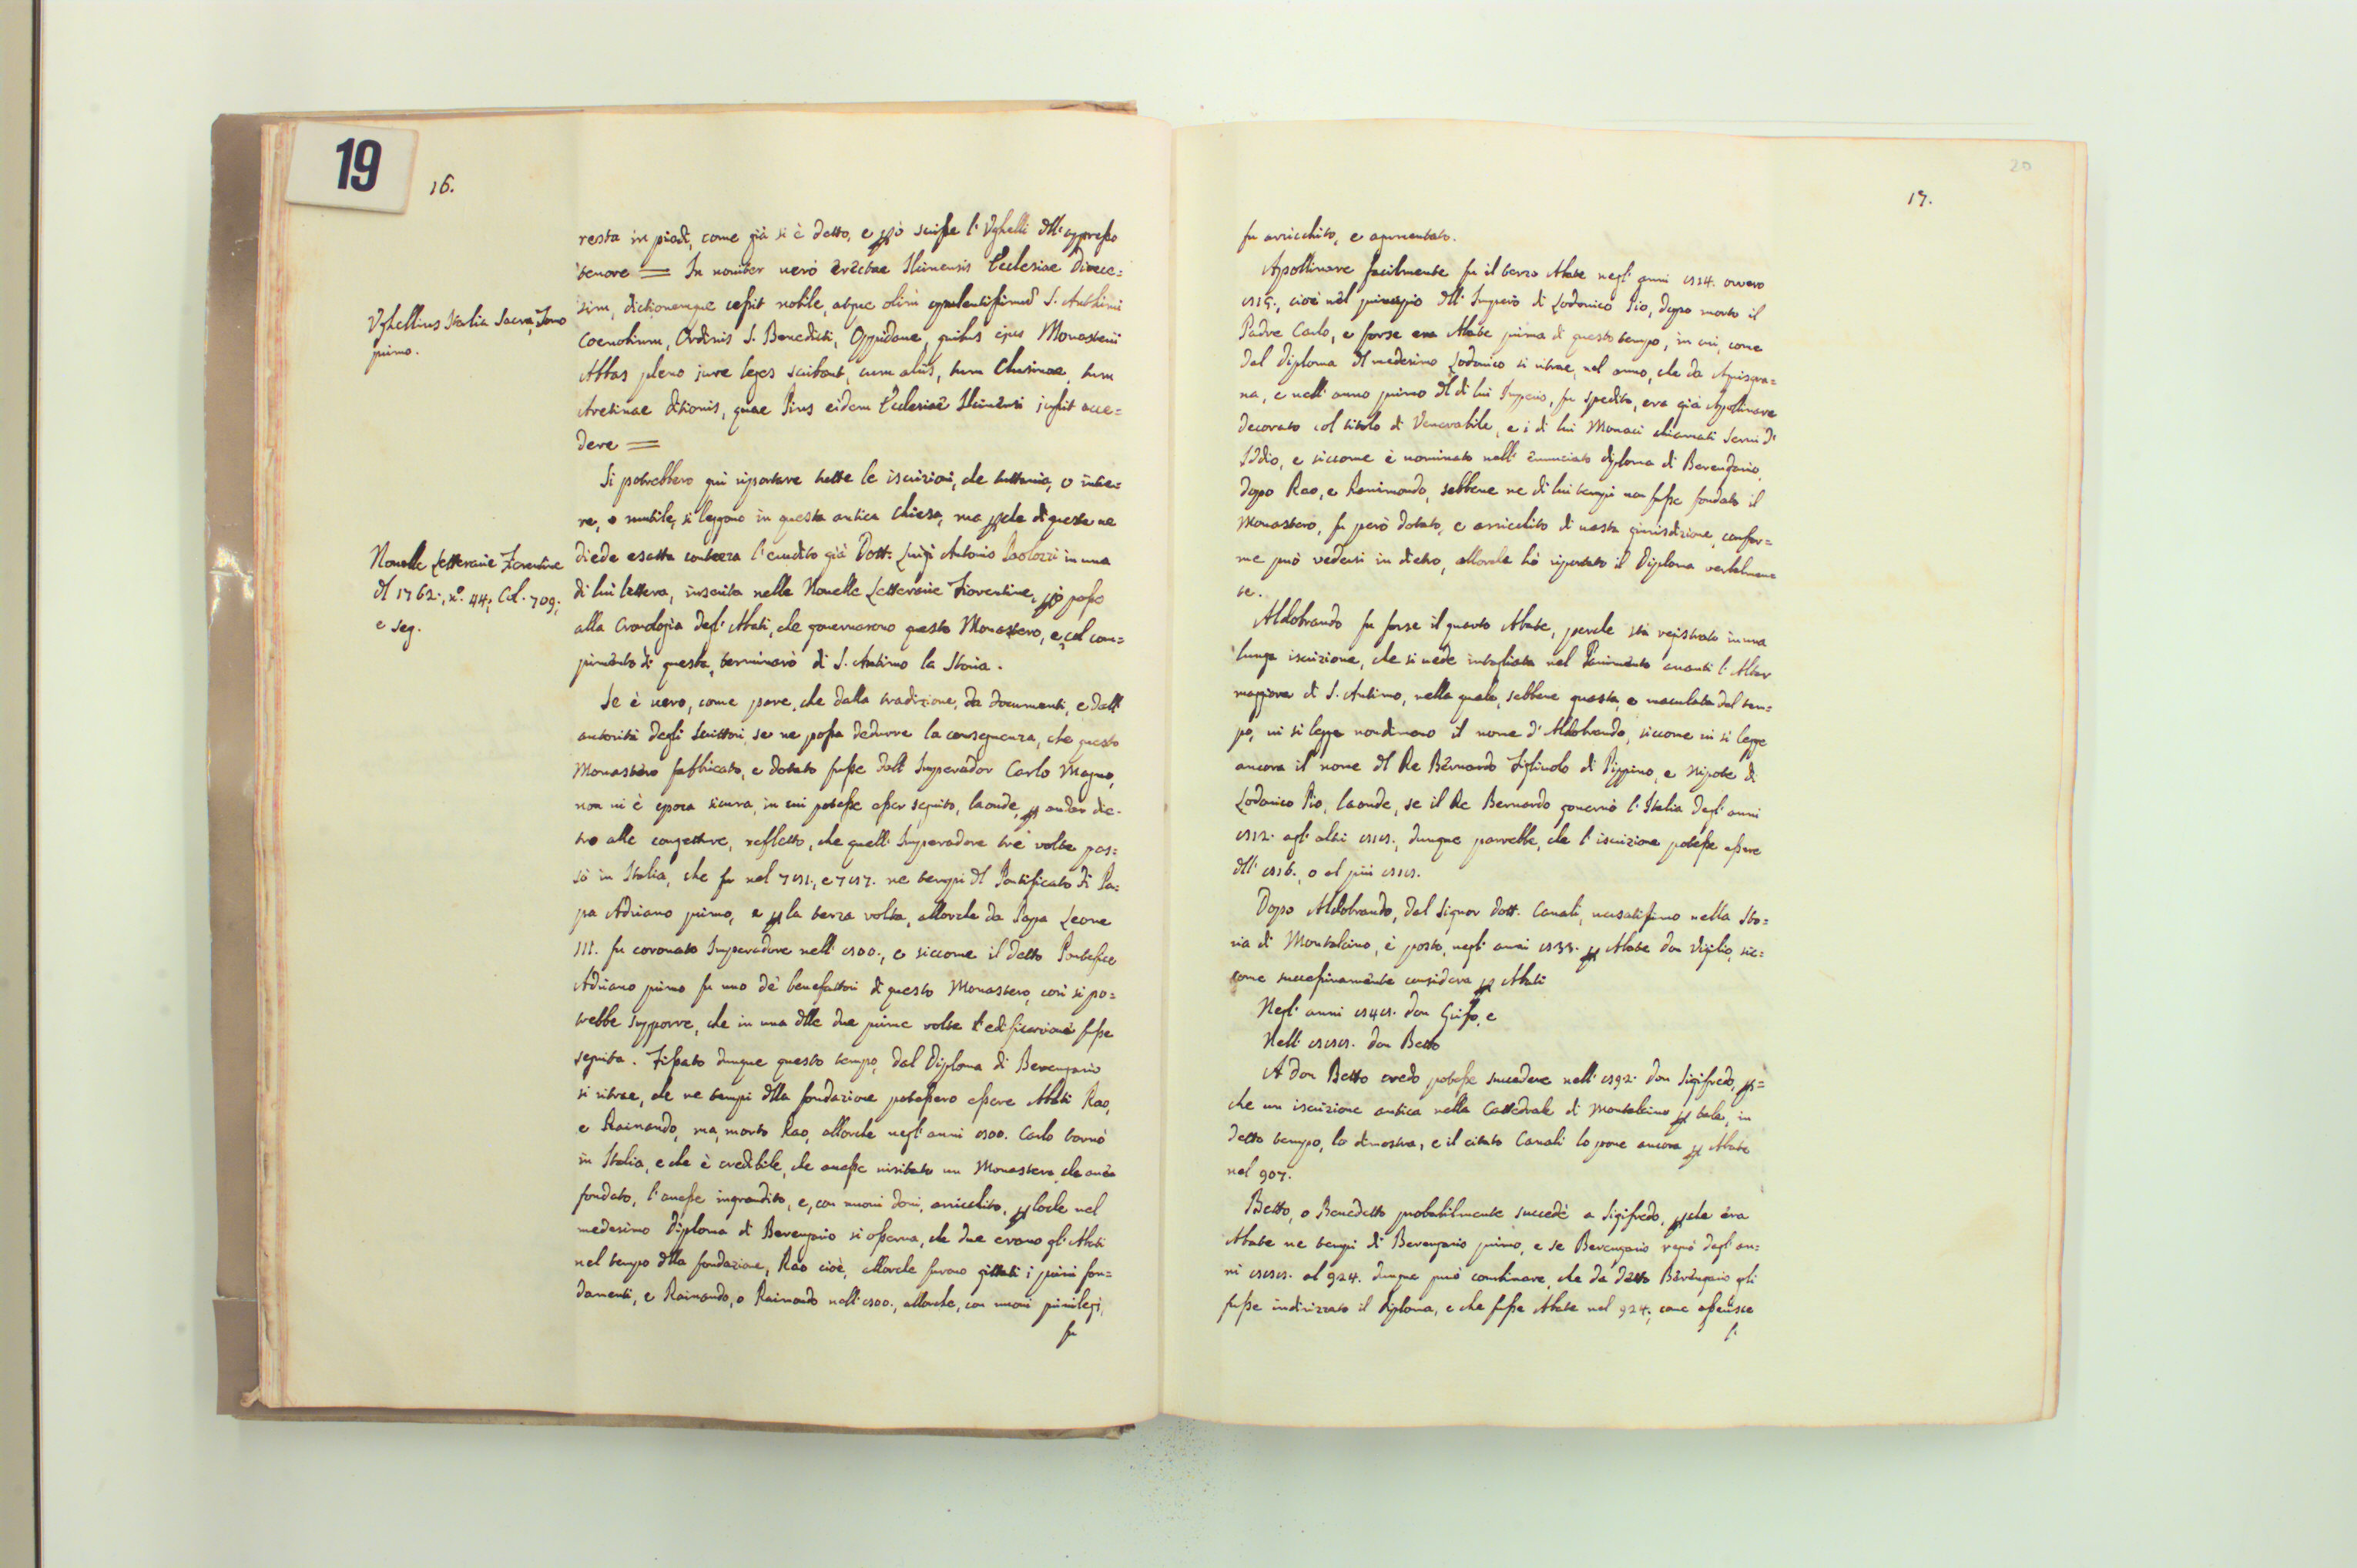 19
16.
resta in piedi, come già si è detto, e però scisse l'Ughelli dell'appresso
tenore = In noniter verò erectae Ilcinensis Ecclesiae Dioece=
Ughellius Italia Sacra, Tomo
primo.
sim, dictionemque cessit nobile, atque olim opulentissimum S. Anthimi
Coenobium, Ordinis S. Benedicti, Oppidane, quibus ejus Monasterii
Abbas pleno jure leges scribant, cum aliis, tum Clusinae, tum
Aretinae ditionis, quae Pius eidem Ecclesiae Ilcinensi jussit acce=
dere =
Si potrebbero qui riportare tutte le iscrizioni, che tuttavia, o intie=
re, o mutile, si leggono in questa antica Chiesa, ma perche di queste ne
Novelle Letterarie Fiorentine
del 1762., n.° 44; Col. 709;
e seg.
diede esatta contezza l'erudito già Dott: Luigi Antonio Paolozzi in una
di lui lettera, inserita nelle Novelle Letterarie Fiorentine, però passo
alla Cronologia degl'Abati, che governarono questo Monastero, e col com=
pimento di questa, terminarò di S. Antimo la Storia.
Se è vero, come pare, che dalla tradizione, da documenti, e dall'
autorità degli Scrittori, se ne possa dedurre la conseguenza, che questo
Monastero fabbricato, e dotato fusse dall'Imperador Carlo Magno,
non vi è epoca sicura, in cui potesse esser seguito, laonde, per andar die-
tro alle congetture, rifletto, che quell'Imperadore trè volte pas=
sò in Italia, che fu nel 781., e 787. ne tempi del Pontificato di Pa=
pa Adriano primo, e per la terza volta, allorche da Papa Leone
III. fu coronato Imperadore nell'800., e siccome il detto Pontefice
Adriano primo fu uno de' benefattori di questo Monastero, così si po=
trebbe supporre, che in una delle due prime volte l'edificazione fusse
seguita. Fissato dunque questo tempo, dal Diploma di Berengario
si ritrae, che ne tempi della fondazione potessero essere Abati Rao,
e Raimondo, ma, morto Rao, allorche negl'anni 800. Carlo tornò
in Italia, e che è credibile, che avesse visitato un Monastero, che avea
fondato, l'avesse ingrandito, e, con nuovi doni, arricchito, perloche nel
medesimo Diploma di Berengario si osserva, che due erano gl'Abati
nel tempo della fondazione, Rao cioè, allorche furono gittati i primi fon=
damenti, e Raimondo, o Raimondo nell'800., allorche, con nuovi privilegi,
fu
20
17.
fu arricchito, e aumentato.
Apollinare facilmente fu il terzo Abate negl'anni 814. ovvero
815., cioè nel principio dell'Imperio di Lodovico Pio, dopo morto il
Padre Carlo, e forse era Abate prima di questo tempo, in cui, come
dal Diploma del medesimo Lodovico si ritrae, nel anno, che da Aquisgra=
na, e nell'anno primo del di lui Imperio, fu spedito, era già Apollinare
decorato col titolo di Venerabile, e i di lui Monaci chiamati Servi d'
Iddio, e siccome è nominato nell'enunciato diploma di Berengario,
dopo Rao, e Ranimondo, sebbene ne di lui tempi non fusse fondato il
Monastero, fu però dotato, e arricchito di vasta giurisdizione, confor=
me può vedersi in dietro, allorche hò riportato il Diploma verbalmen=
te.
Aldobrando fu forse il quarto Abate, perche stà registrato in una
lunga iscrizione, che si vede intagliata nel Pavimento avanti l'Altar
maggiore di S. Antimo, nella quale, sebbene guasta, e maculata dal tem=
po, vi si legge nondimeno il nome d'Aldobrando, siccome vi si legge
ancora il nome del Re Bernardo Figliuolo di Pippino, e Nipote di
Lodovico Pio, laonde, se il Re Bernardo governò l'Italia degl'anni
812. agl'altri 818., dunque parrebbe, che l'iscrizione potesse essere
dell'816., o al più 818.
Dopo Aldobrando, dal Signor Dott. Canali, versatissimo nella Sto=
ria di Montalcino, è posto, negl'anni 833. per Abate don Vigilio, sic=
come successivamente considera per Abati
Negl'anni 848. don Griso, e
Nell'888. don Betto
A don Betto credo potesse succedere nell'892. don Sigifredo, per=
che un iscrizione antica nella Cattedrale di Montalcino per tale, in
detto tempo, lo dimostra, e il citato Canali lo pone ancora per Abate
nel 907.
Betto, o Benedetto probabilmente succedè a Sigifredo, perche era
Abate ne tempi di Berengario primo, e se Berengario regnò degl'an=
ni 888. al 924. dunque può combinare, che da detto Berengario gli
fusse indirizzato il Diploma, e che fusse Abate nel 924., come asserisce
l'